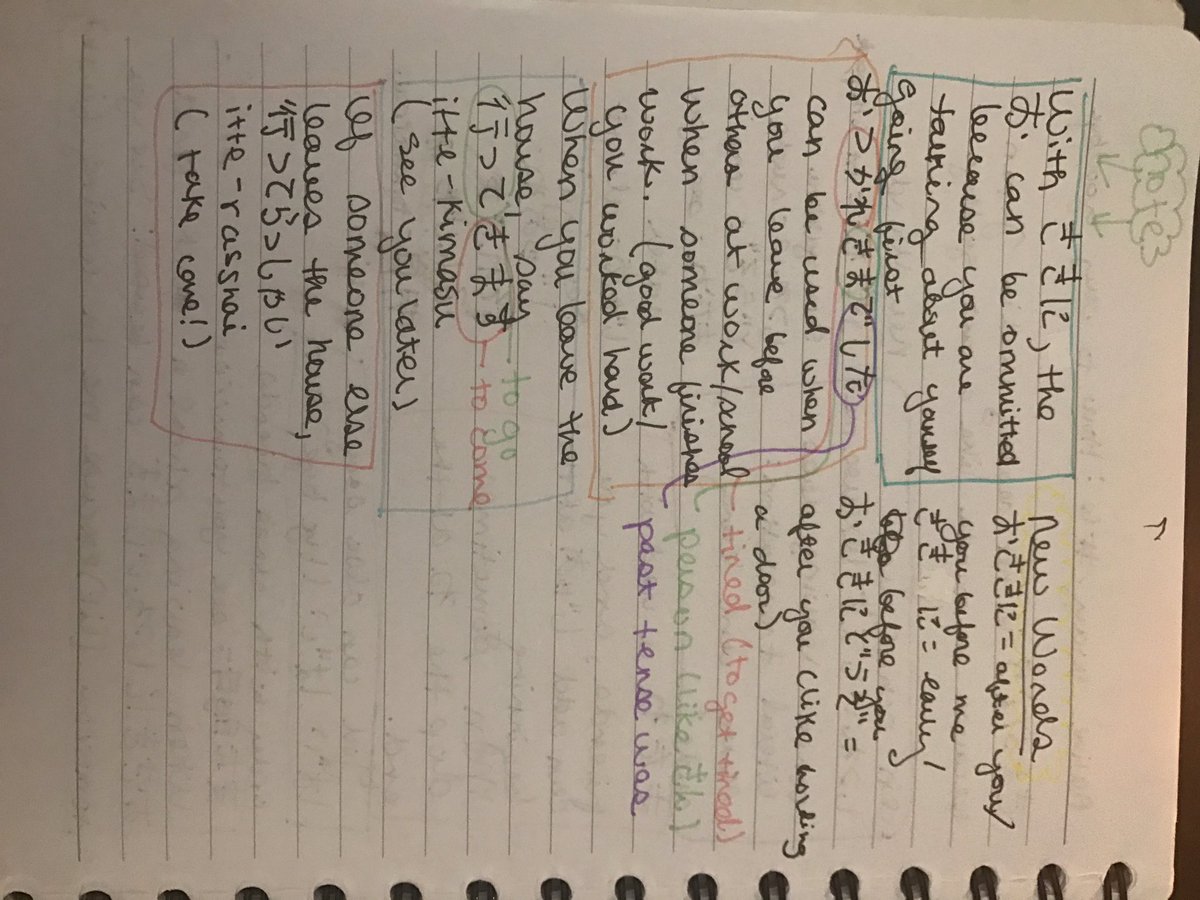 notes
With さきに, the
お can be ommitted
because you are
talking about yourself
going first
おつかれさまでした
can be used when
you leave before
others at work/school
When someone finishes
work. (good work/
you worked hard)
When you leave the
house, say
行ってきます
to go
to come
itte-kimasu
(see you later)
If someone else
leaves the house,
行ってらっしゃい
itte-rasshai
(take care!)
New Words
おさきに = after you/
you before me
さきに = early/
before you
おさきにどうぞ =
after you (like holding
a door)
tired (to get tired)
person (like さん)
past tense was